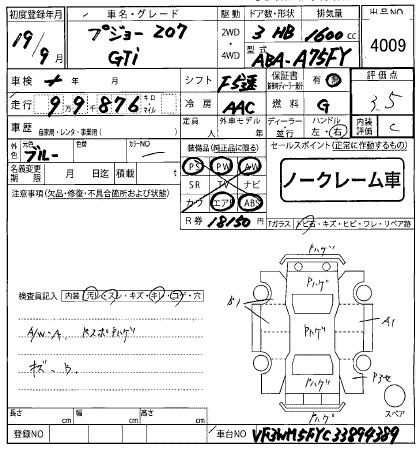 初度登録年月 車名・グレード 駆動 ドア数・形状 排気量 出品NO
19年 プジョー 207 2WD 3 HB 1600cc 4009
9月 GTi 4WD 型式 ABA-A75FY
車検 年 月 シフト F5速 保証書 有 無 評価点
走行 99,876 キロ・マイル 冷房 AAC 燃料 G 3.5
車歴 自家用・レンタ・事業用( ) 外車モデル 年 ディーラー・並行 ハンドル 左・右 内装評価 C
外色 元色 ブルー 色替 カラーNO 装備品(純正品に限る) セールスポイント(正常に作動するもの)
名義変更期限 月 日迄 積載 t PS PW AW ノークレーム車
注意事項(欠品・修復・不具合箇所および状態) SR TV ナビ
カワ エアB ABS
R券 18150円 Fガラス トビ石・キズ・ヒビ・ワレ・リペア跡
Pハゲ
Pハゲ
検査員記入 内装 汚レ・スレ・キズ・キレ・コゲ・穴
B1 Pハゲ A1
A/W-キ. RスポPハゲ
キズ・
Pハゲ
Pハゲ スペア
長さ cm 幅 cm 高さ cm
登録NO 車台NO VF3WM5FYC33894389